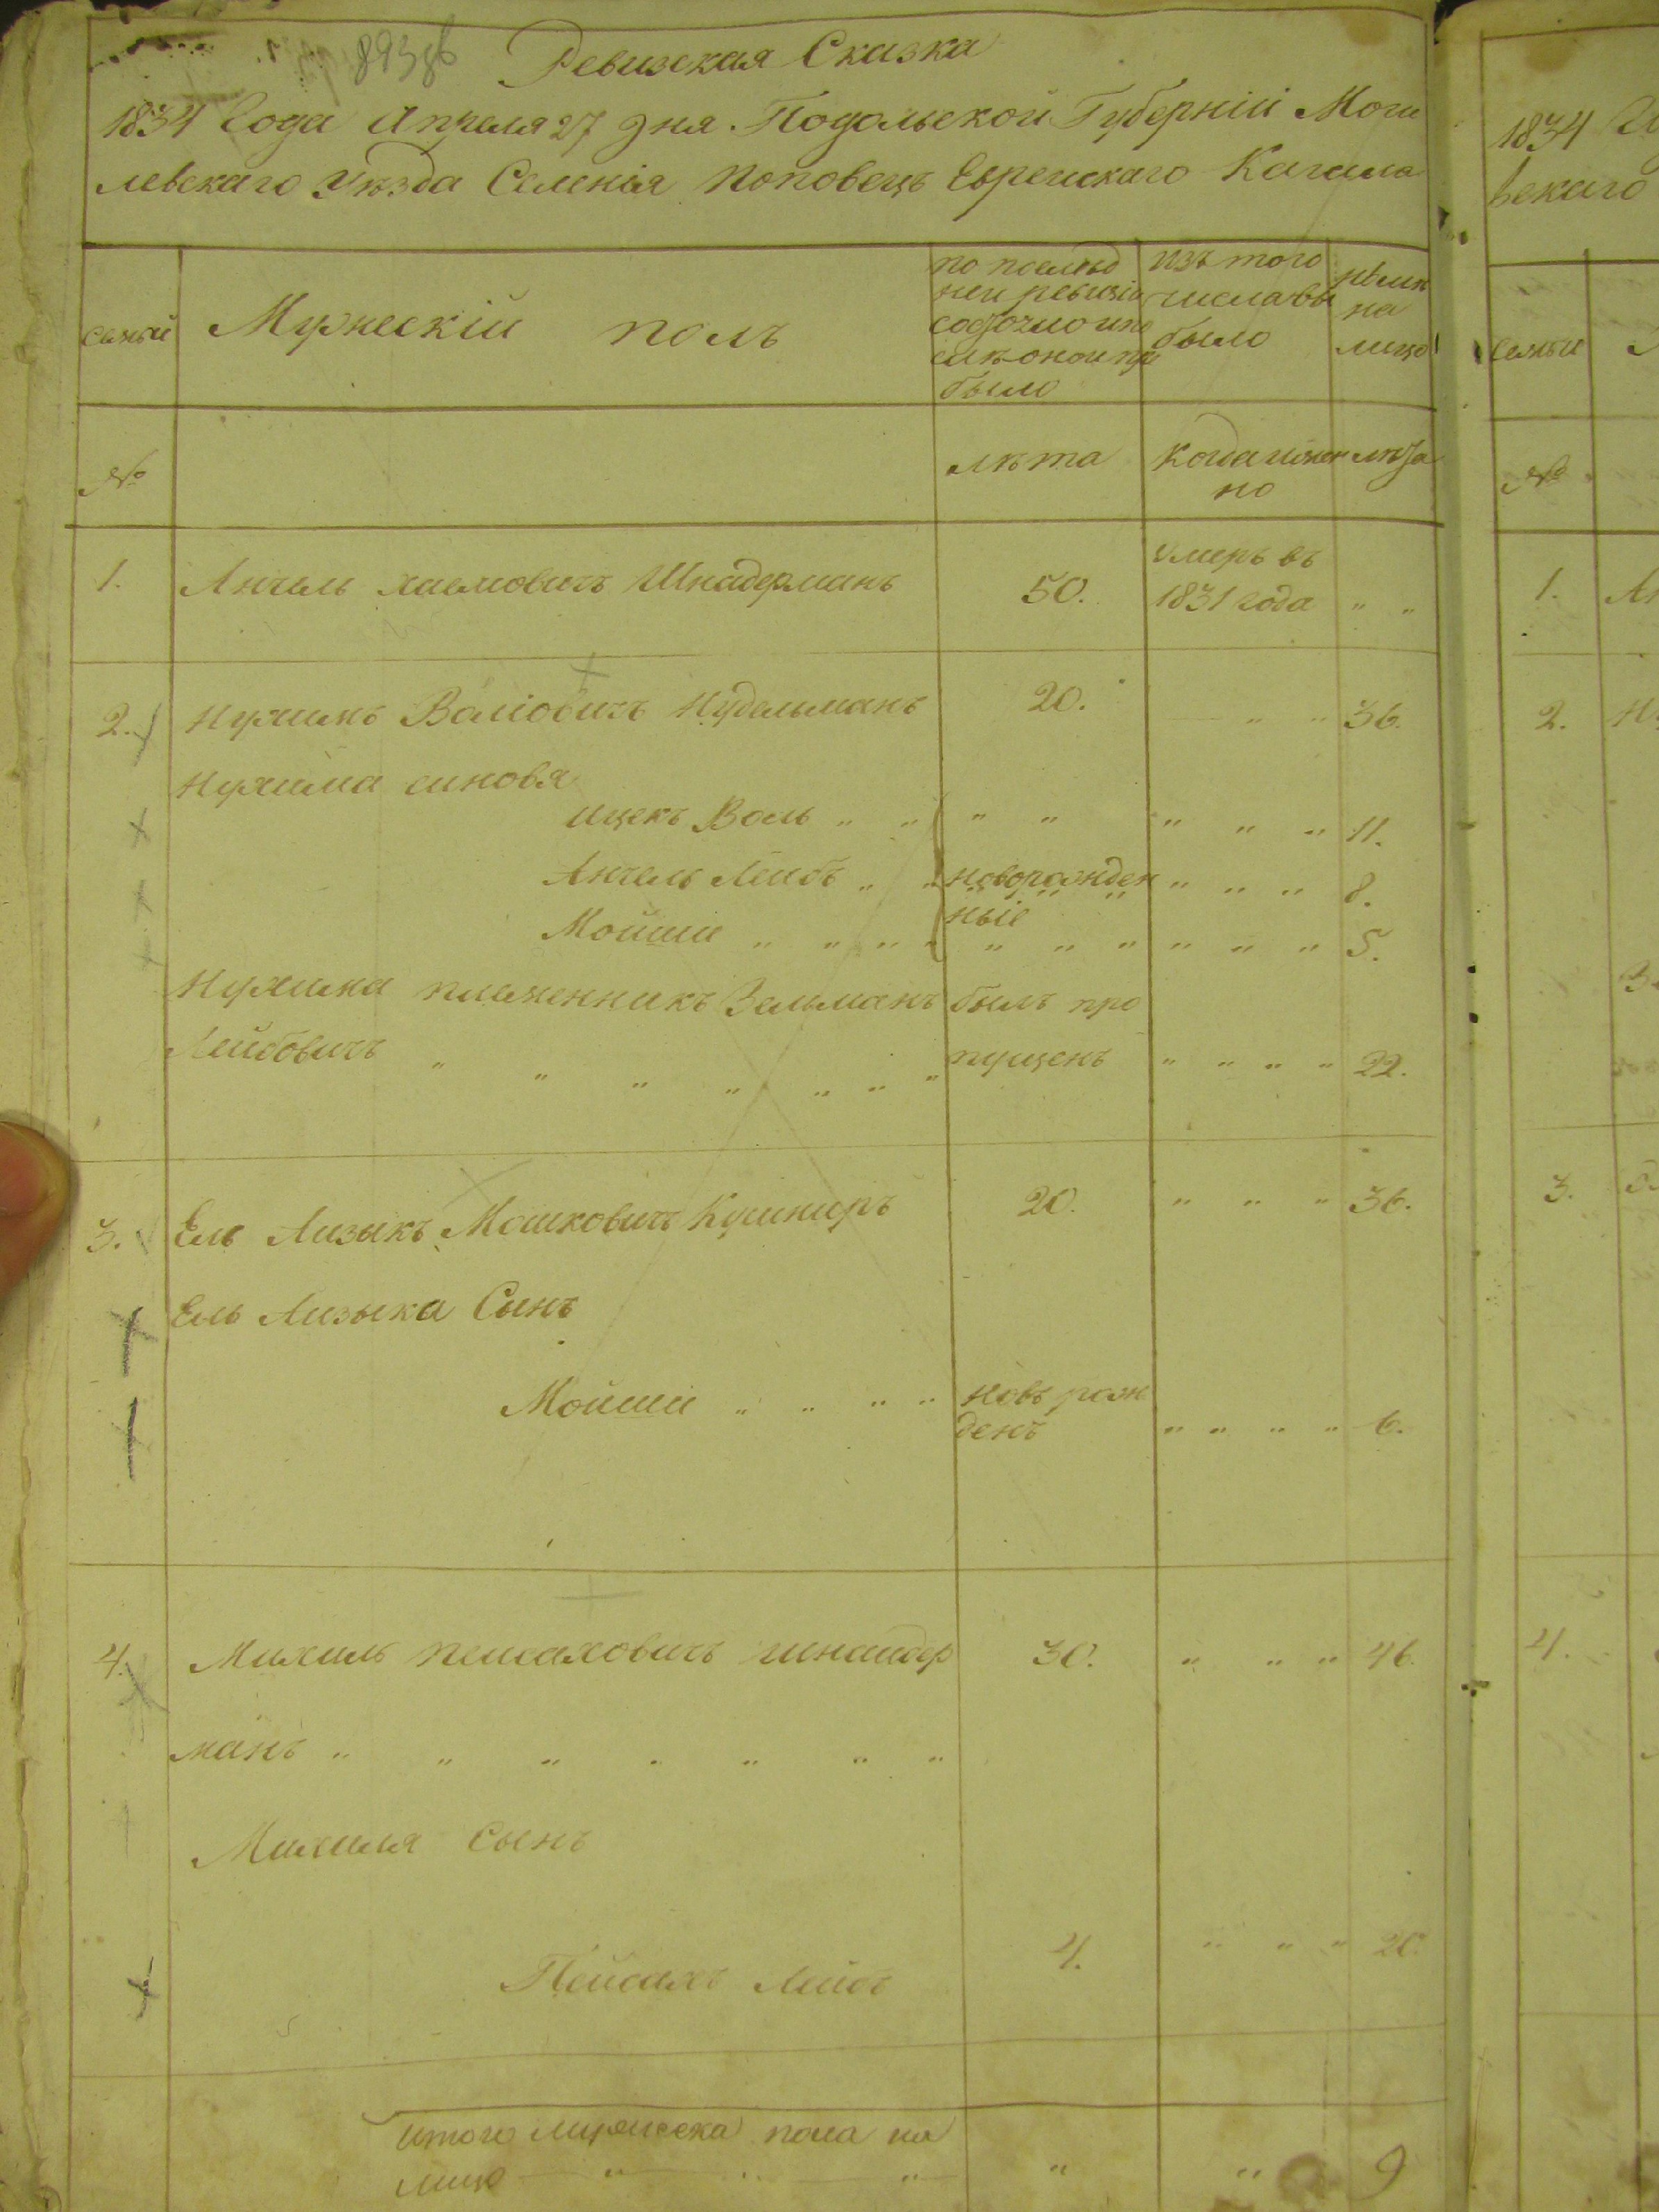 893 об
Ревизская Сказка
1834 Года Апреля 27 дня Подольской Губерніи Моги
левскаго Уѣзда Селенія Поповецъ Еврейскаго Кагала
семьи
Мужескій полъ
по послѣд
ней ревизіи
состояло и по
слѣ оной при
было
изъ того
числа вы
было
нынѣ
на
лицо
№
лѣта
когда имен
но
лѣта
1. Анчель Хаемовичъ Шнадерманъ 50. умеръ въ
1831 года " "
2. Нухимъ Волiовичъ Нудельманъ 20. " " 36.
Нухима синовя
Ицекъ Воль " " " " " " " 11.
Анчель Лейбъ " " новорожден " " " 8.
ные
Мойше " " " " " " " " " " 5.
Нухима племенникъ Зельманъ былъ про
Лейбовичъ " " " " " " " пущенъ " " " " 22.
3. Ель Аизыкъ Мошковичъ Кушниръ 20. " " " 36.
Ель Аизыка Сынъ
Мойше " " " " новъ рож
денъ " " " " 6.
4. Михиль пейсаховичъ шнайдер 30. " " " 46.
манъ " " " " " " "
Михиля сынъ
Пейсахъ Лейбъ 4. " " " 20.
итого мужеска пола на
лицо " " " " " 9
1834
вскаго
семьи
№
1.
2.
3.
4.